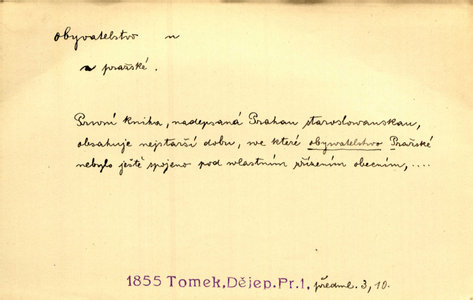 obyvatelstvo n
~ pražské.
První kniha, nadepsaná Prahau staroslowanskau,
obsahuje nejstarší dobu, we které obywatelstwo Pražské
nebylo ještě spojeno pod wlastním zřízením obecním, ....
1855 Tomek, Dějep. Pr. 1, předml. 3, 10.